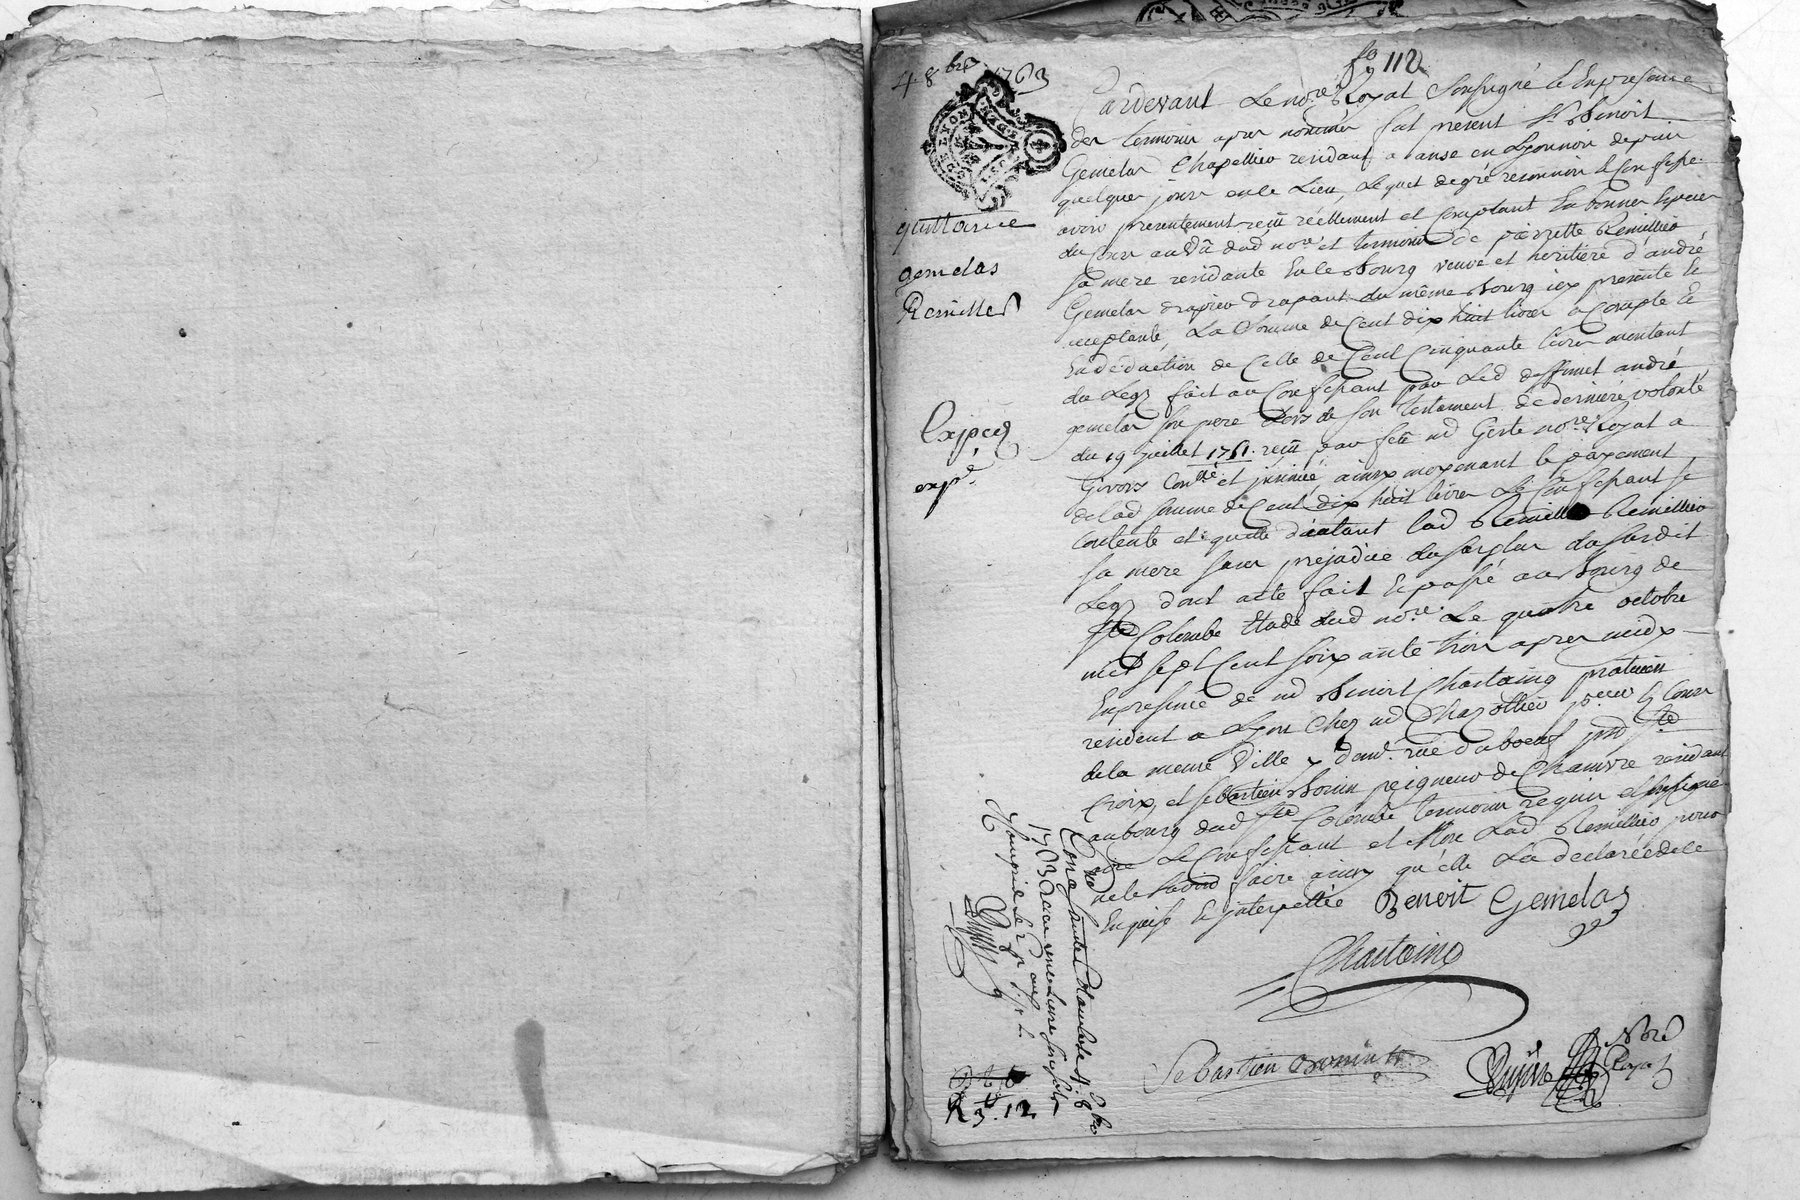 4. 8bre 1763
fo 112
quittance
gemelas
Remillier
Expcez
expé.
Pardevant Le nore Royal soussigné Et En presence
des temoins apres nommés fut present sr Benoit
Gemelas Chapellier residant a anse en Lyonnois depuis
quelques jours en le Lieu, Lequel de gré reconnoit Et Confesse
avoir presentement recu réellement et Comptant En bonnes Especes
du Cours au vû dud nore et temoins de pierrette Remillier
sa mere residante En le Bourg veuve et heritiere d'andré
Gemelas drapier drapant du même Bourg icy presente Et
acceptante, La Somme de Cent dix huit livres a Compte Et
En deduction de Celle de Cent Cinquante livres montant
du Legs fait au Confessant par Led deffunt andré
gemelas son pere Lors de son testament de derniere volonté
du 19 juillet 1761. recu par feu me Geste nore Royal a
Givors Conllé et insinué, ainsy moyenant le payement
de lad somme de Cent dix huit livres Le Confessant se
Contente et quitte d'autant lad Remillier
sa mere sans prejudice du surplus du susdit
Legs dont acte fait Et passé au Bourg de
Ste Colombe Etude dud nore. Le quatre octobre
mil sept Cent soixante trois apres midy
En presence de me Benoit Chastaing praticien
resident a Lyon Chez me Chazottier pcur Es Cours
de la meme Ville y demt. rüe du boeuf psse Ste
Croix, et sebastien Bonin peigneur de Chanvre residant
au bourg dud Ste Colombe temoins requis et soussignés
avec Le Confessant et Non Lad Remillier pour
ne le savoir faire ainsy qu'elle L'a declaré de ce
Enquise Et interpellée Benoit Gemelas
Chastaing
Sebastien Bonin
Nore
Royal
R 3. 12